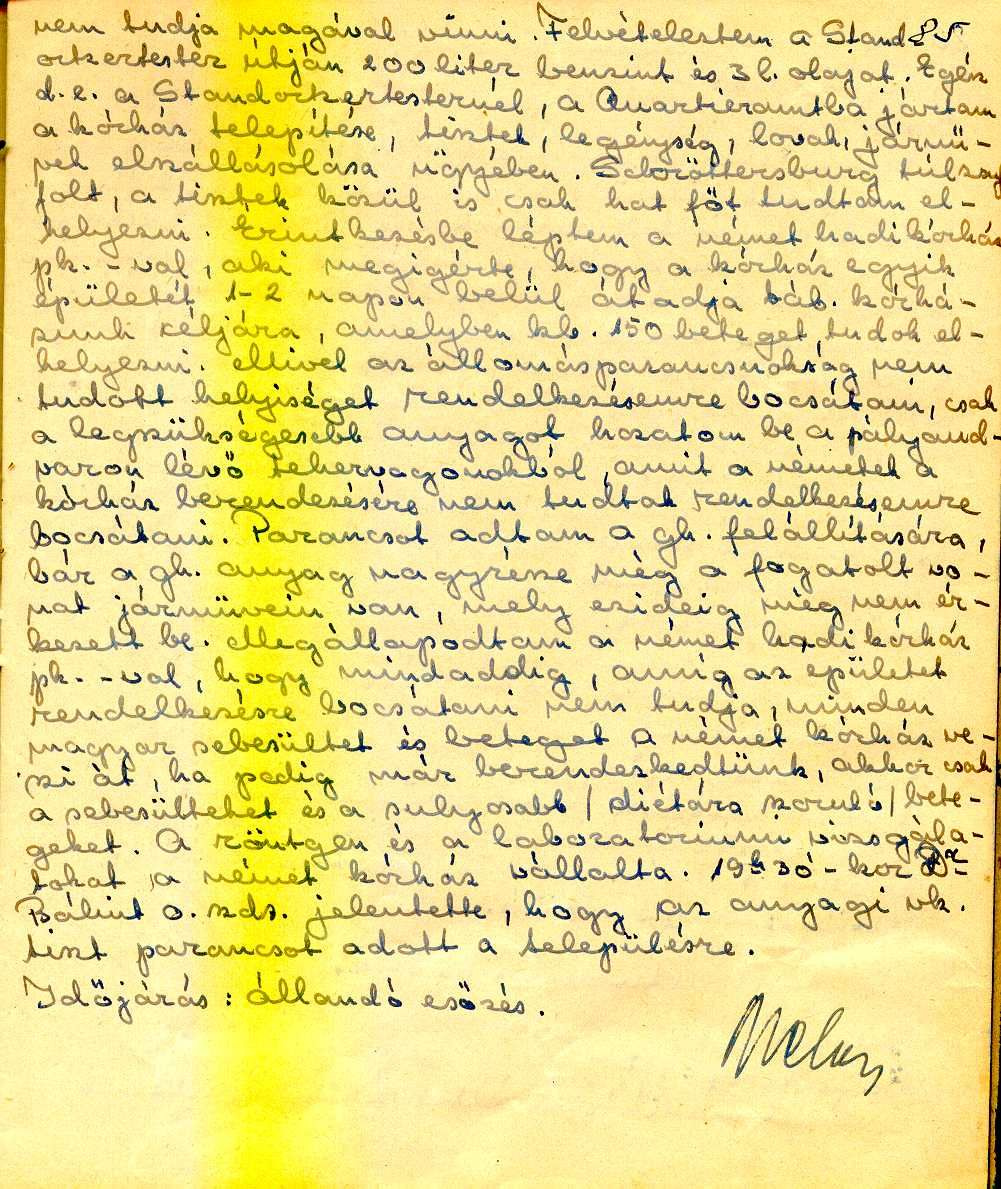 nem tudja magával vinni. Felvételeztem a Stand- 85
ortkertester útján 200 liter benzint és 3 l. olajat. Egész
d.e. a Standortkertesternél, a Quartieramtba jártam
a kórház telepítése, tisztek, legénység, lovak, jármű-
vek elszállásolása ügyében. Schröttersburg túlzsú
folt, a tisztek közül is csak hat főt tudtam el-
helyezni. Érintkezésbe léptem a német hadikórház
pk.-val, aki megigérte, hogy a kórház egyik
épületét 1-2 napon belül átadja táb. kórhá-
zunk céljára, amelyben kb. 150 beteget tudok el-
helyezni. Mivel az állomásparancsnokság nem
tudott helyiséget rendelkezésemre bocsátani, csak
a legszükségesebb anyagot hozatom be a pályaud-
varon lévő tehervagonokból, amit a németek a
kórház berendezésére nem tudtak rendelkezésemre
bocsátani. Parancsot adtam a gh. felállítására,
bár a gh. anyag nagyrésze még a fogatolt vo-
nat járművein van, mely ezideig még nem ér-
kezett be. Megállapodtam a német hadikórház
pk.-val, hogy mindaddig, amíg az épületet
rendelkezésre bocsátani nem tudja, minden
magyar sebesültet és beteget a német kórház ve-
szi át, ha pedig már berendezkedtünk, akkor csak
a sebesülteket és a sulyosabb /diétára szoruló/ bete-
geket. A röntgen és a laboratoriumi vizsgála-
tokat a német kórház vállalta. 19h 30-kor Dr
Bálint o. szds. jelentette, hogy az anyagi vk.
tiszt parancsot adott a településre.
Időjárás: állandó esőzés.